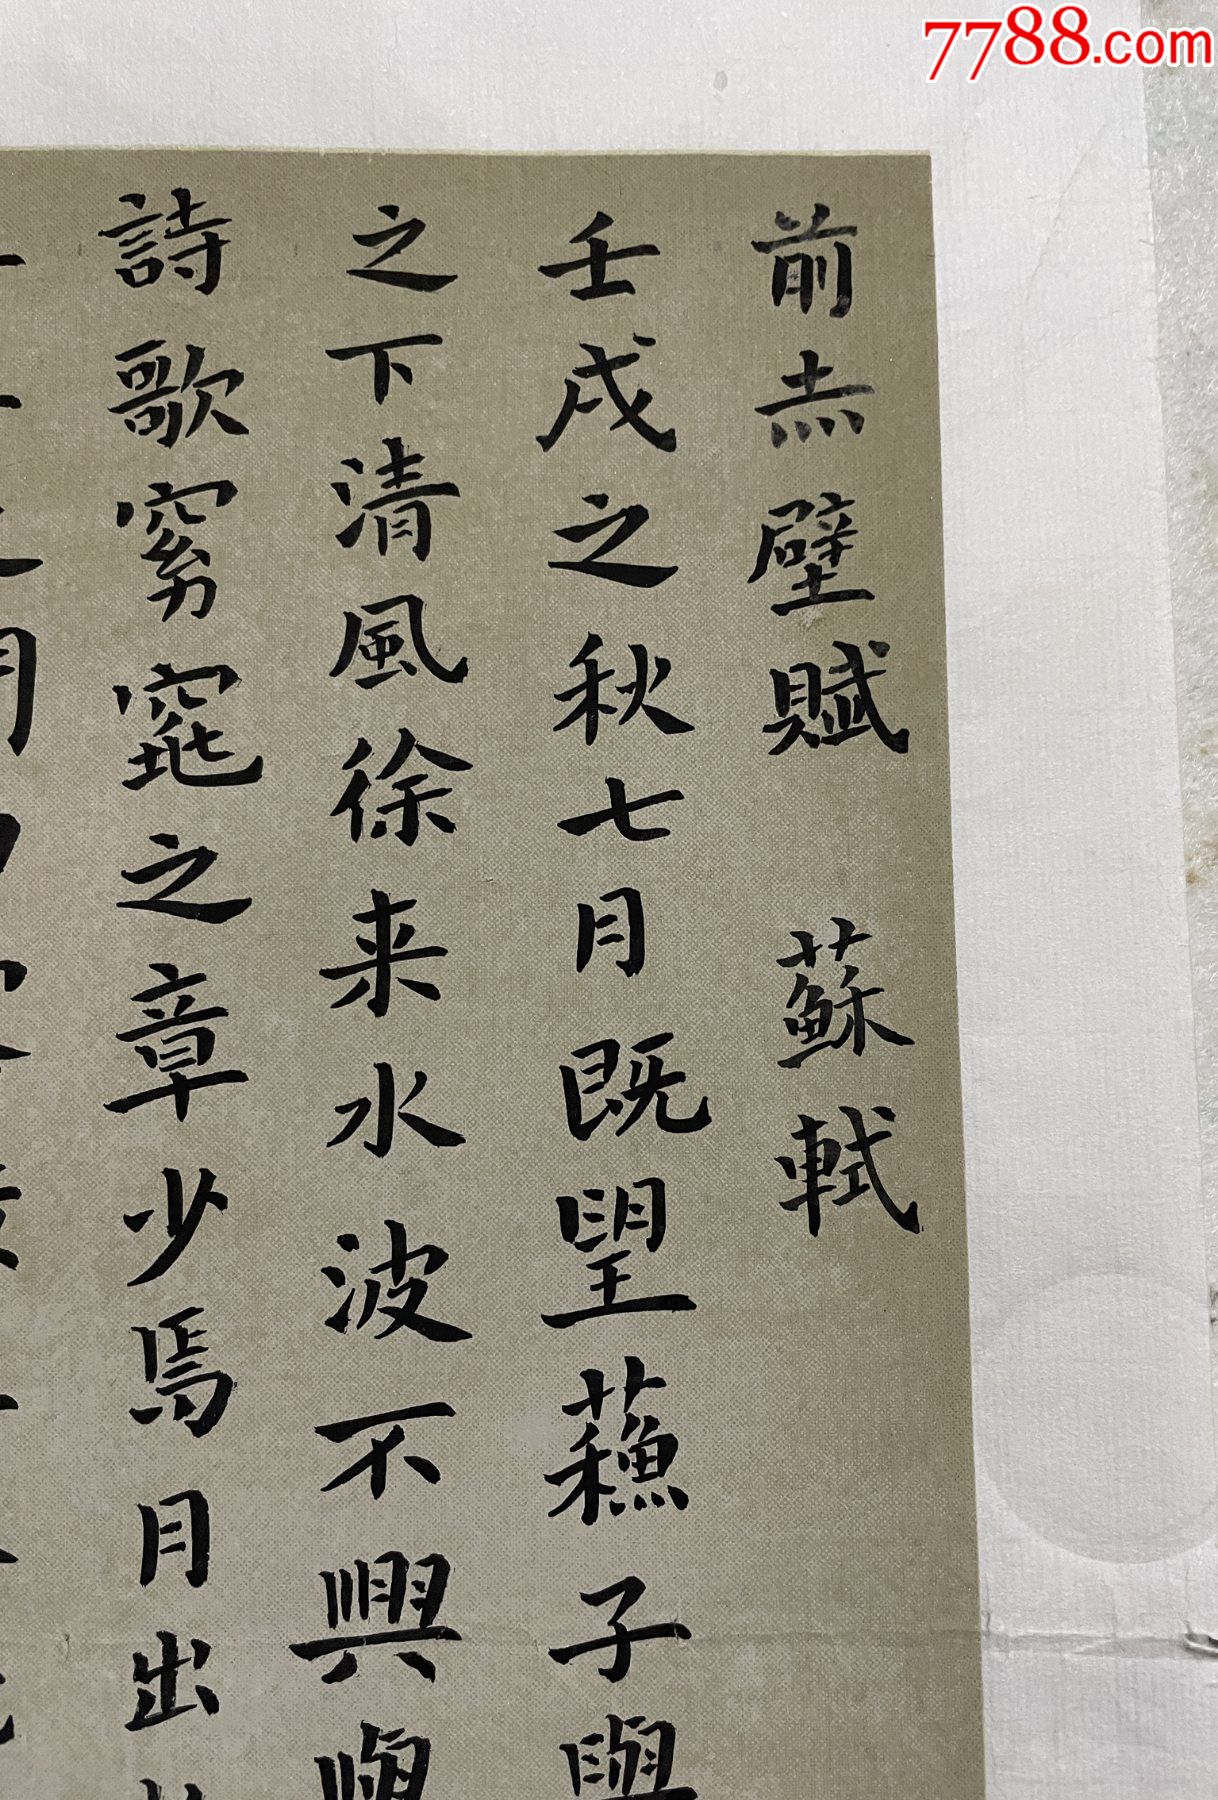 7788.com
前赤壁賦 蘇軾
壬戌之秋七月既望蘓子與
之下清風徐来水波不興
詩歌窈窕之章少焉月出